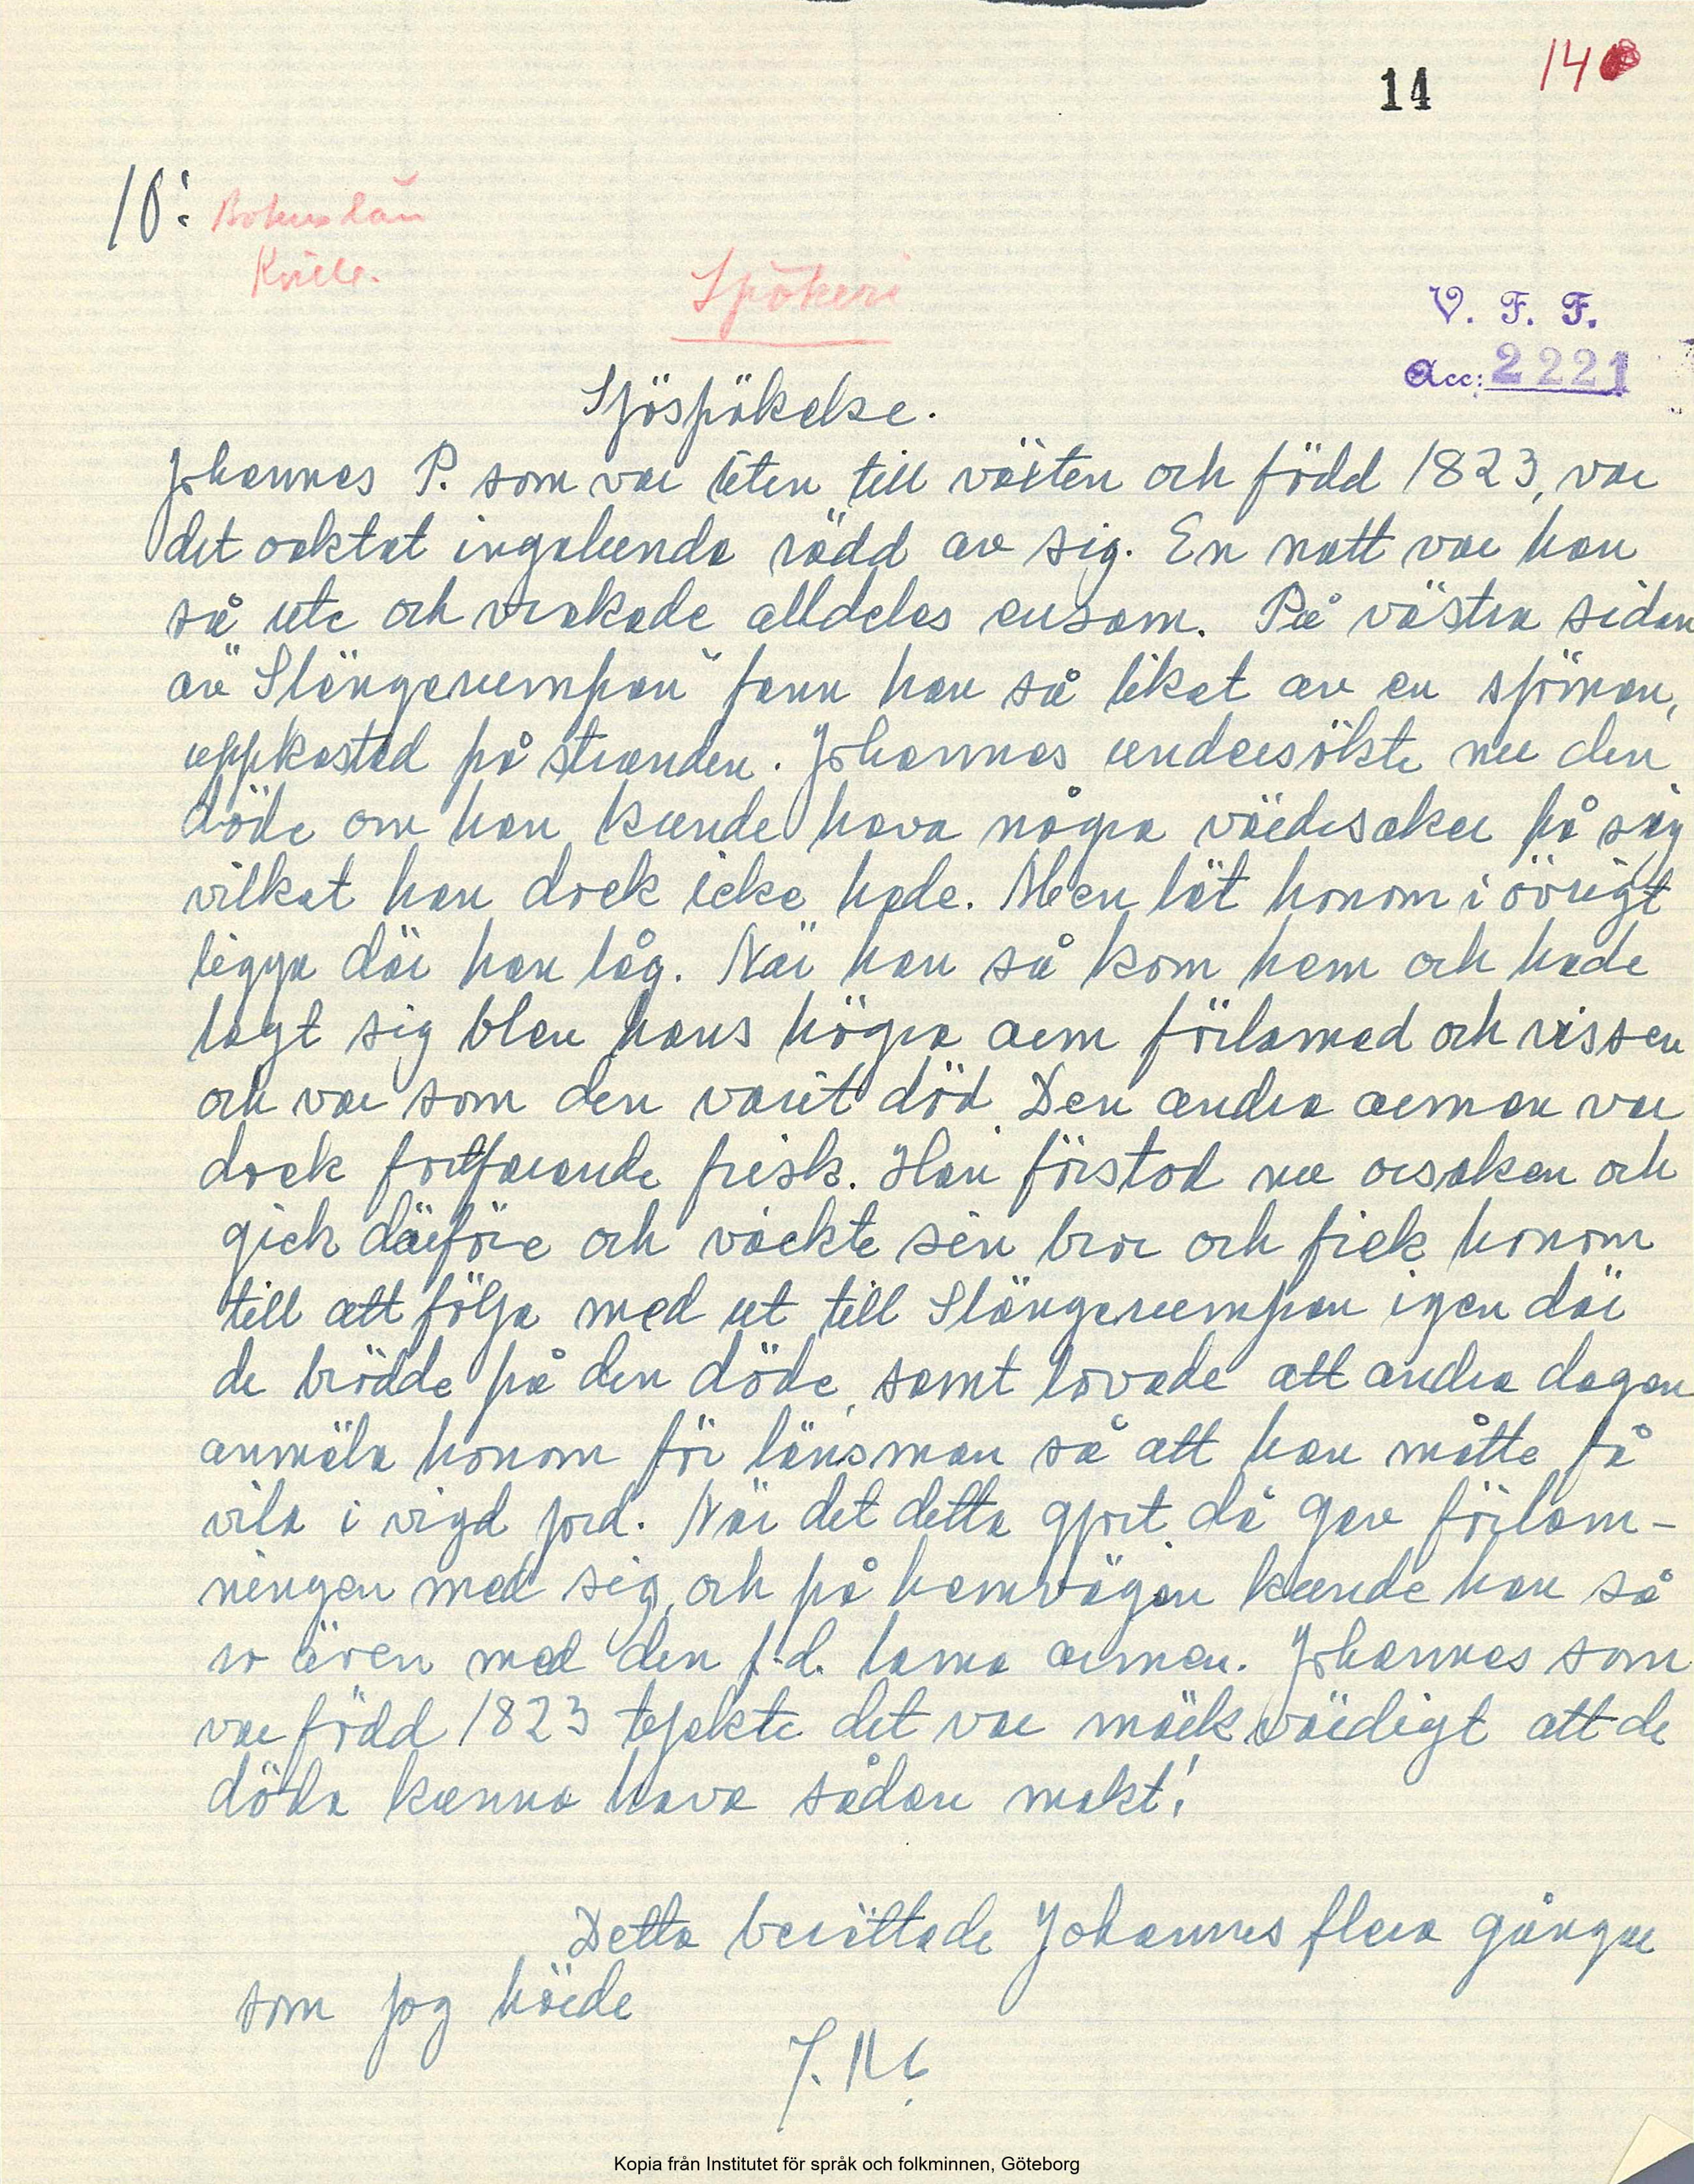 14
14
10:
Bohuslän
Kville.
Spökeri
V. F. F.
Acc: 2221
Sjöspökelse.
Johannes P. som var liten till växten och född 1823, var
det oaktat ingalunda rädd av sig. En natt var han
så ute och vrakade alldeles ensam. På västra sidan
av "Slängerumpan" fann han så liket av en sjöman,
uppkastad på stranden. Johannes undersökte nu den
döde om han kunde hava några värdesaker på sig
vilket han dock icke hade. Men lät honom i övrigt
ligga där han låg. När han så kom hem och hade
lagt sig blev hans högra arm förlamad och vissen
och var som den varit död. Den andra armen var
dock fortfarande frisk. Han förstod nu orsaken och
gick därföre och väckte sin bror och fick honom
till att följa med ut till Slängerumpan igen där
de brädde på den döde, samt lovade att andra dagen
anmäla honom för länsman så att han måtte få
vila i vigd jord. När det detta gjort då gav förlam-
ningen med sig, och på hemvägen kunde han så
ro även med den f.d. lama armen. Johannes som
var född 1823 tyckte det var märkvärdigt att de
döda kunna hava sådan makt!
Detta berättade Johannes flera gånger
som jag hörde